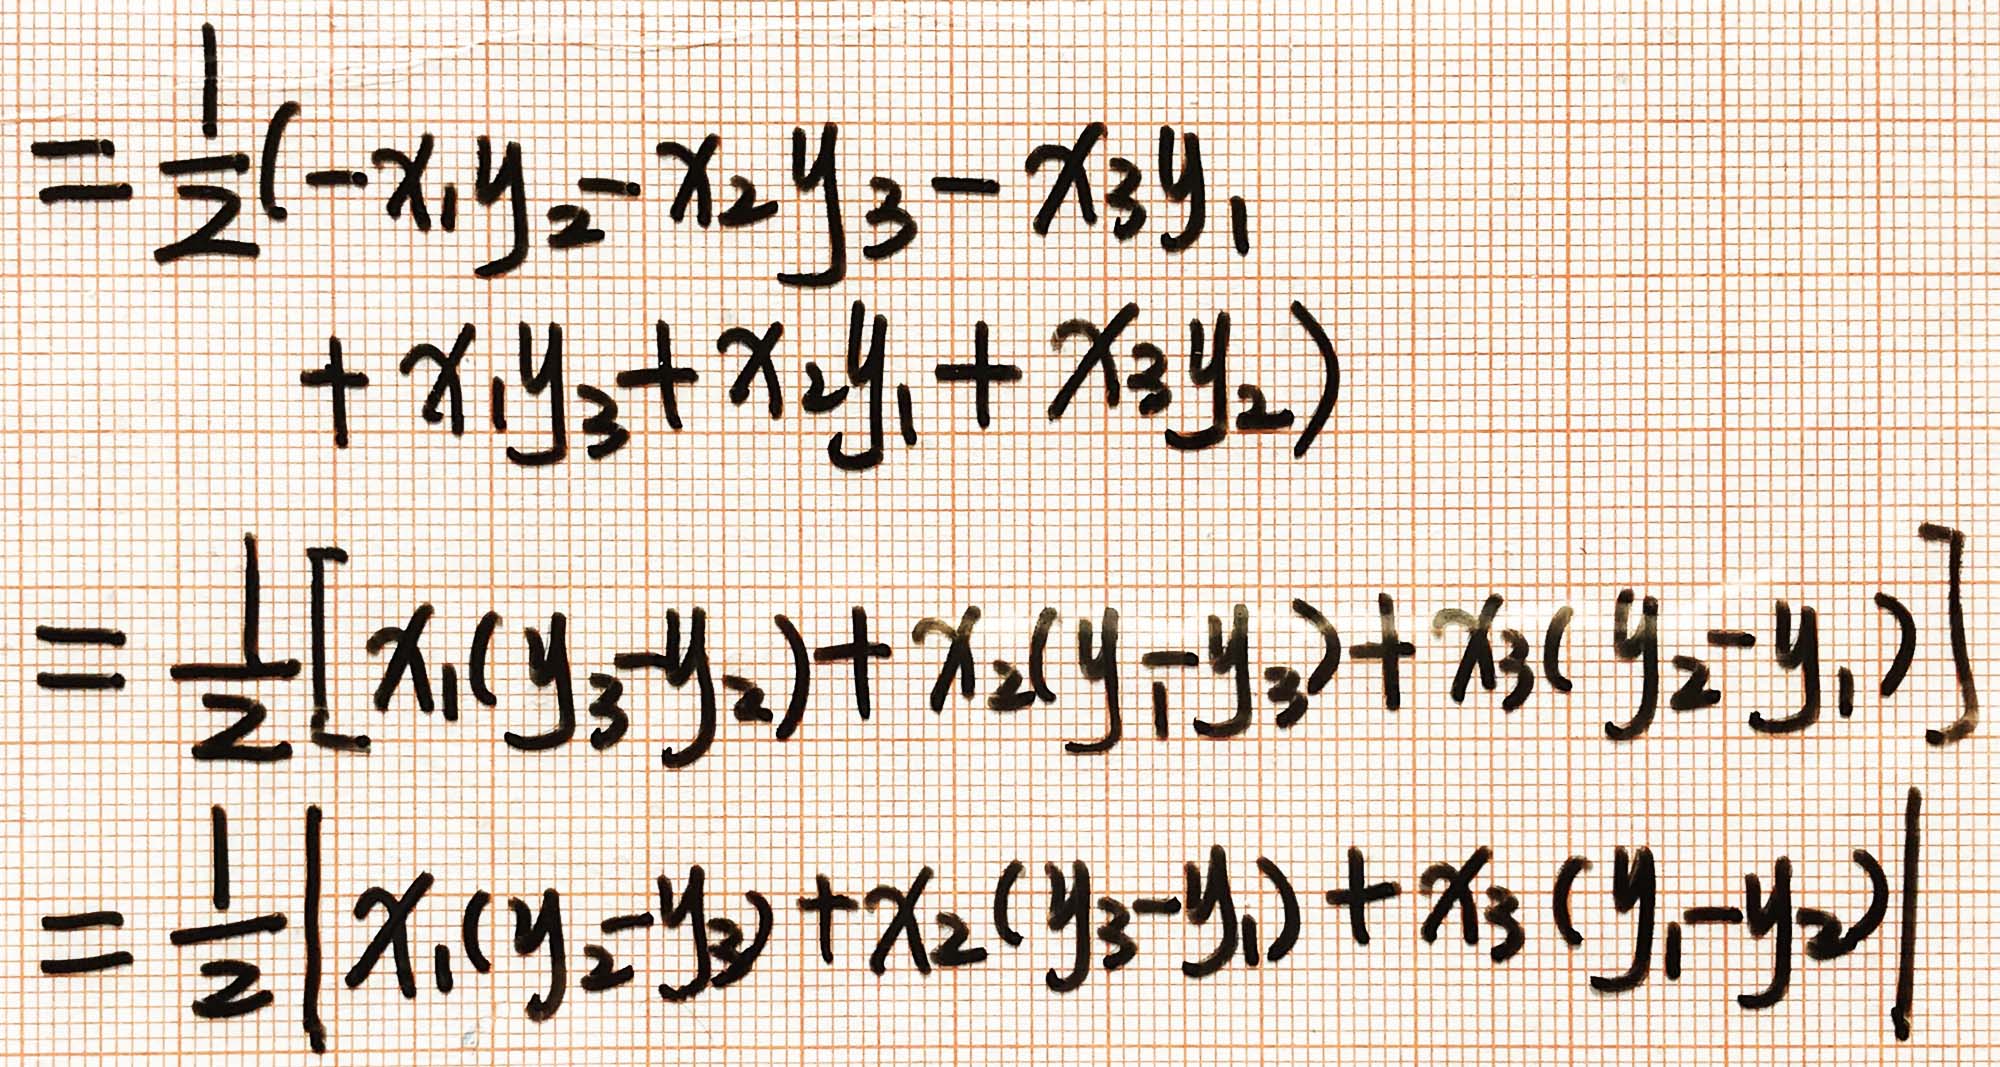 = 1/2 (-x₁y₂ - x₂y₃ - x₃y₁
+ x₁y₃ + x₂y₁ + x₃y₂)
= 1/2 [x₁(y₃-y₂) + x₂(y₁-y₃) + x₃(y₂-y₁)]
= 1/2 |x₁(y₂-y₃) + x₂(y₃-y₁) + x₃(y₁-y₂)|